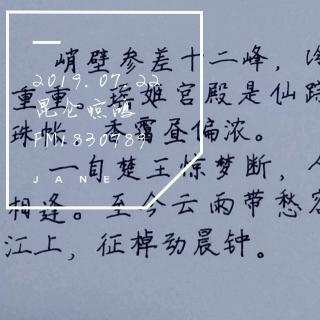 峭壁参差十二峰，冷
2019.07.22
重重。瑶姬宫殿是仙踪
昆仑
珠帐，香霭昼偏浓。
FM1830783
一自楚王惊梦断，人
JANE
相逢。至今云雨带愁容
江上，征棹动晨钟。